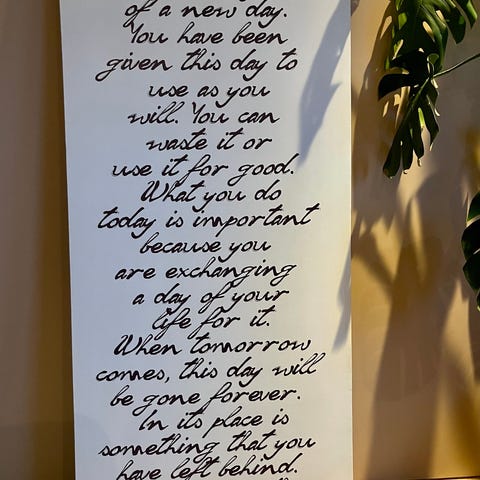 of a new day.
You have been
given this day to
use as you
will. You can
waste it or
use it for good.
What you do
today is important
because you
are exchanging
a day of your
life for it.
When tomorrow
comes, this day will
be gone forever.
In its place is
something that you
have left behind.